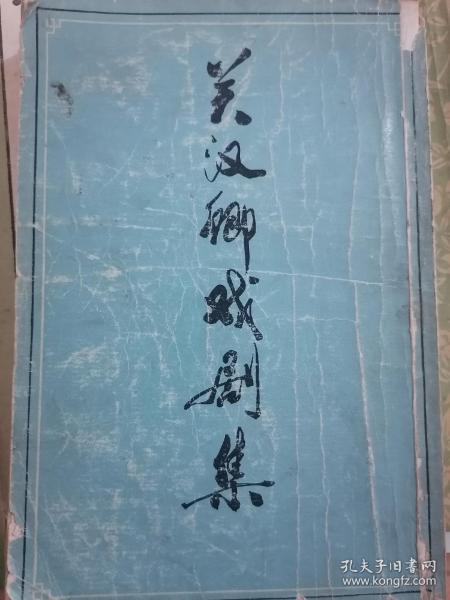 关汉卿戏剧集
孔夫子旧书网
www.kongfz.com